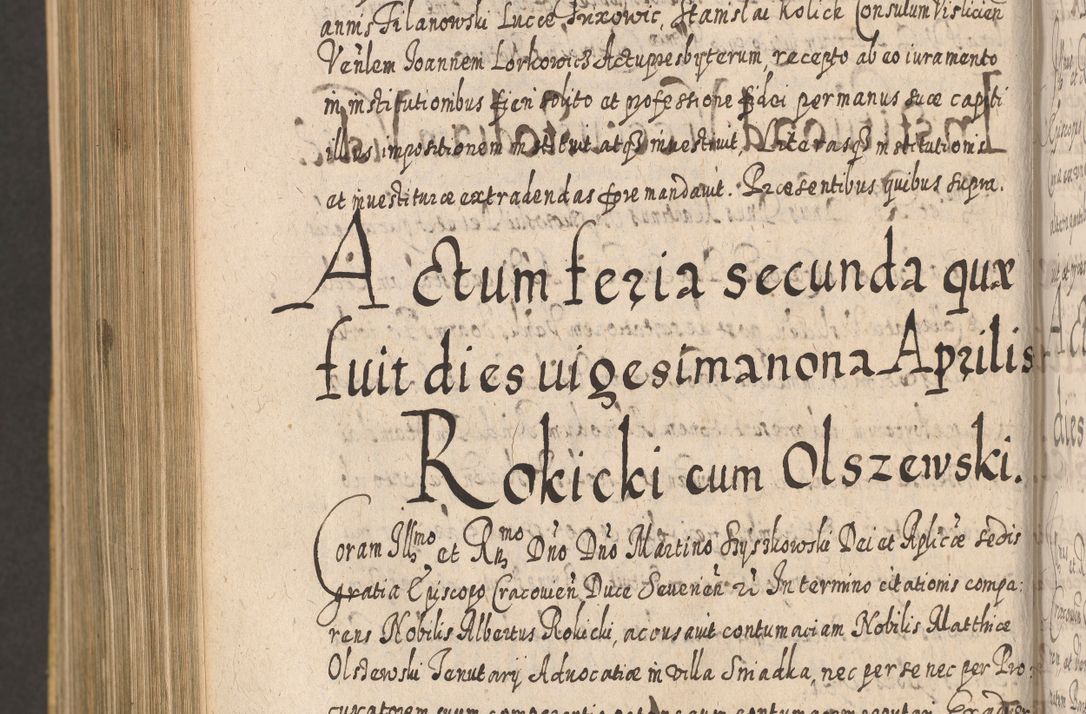 annis Filanowski Lucæ Fuxowic, Stanislai Kolick Consulum Vislicien
Veñlem Joannem Lorkowicz Actu presbyterum, recepto ab eo iuramento
in institutionibus fieri solito et professione fidei per manus suæ capiti
illius impositionem instituit atq3 inuestiuit, Literasq3 institutionis
et inuestituræ extradendas fore mandauit. Præsentibus quibus supra.
Actum feria secunda quæ
fuit dies uigesima nona Aprilis
Rokicki cum Olszewski.
Coram Illmo et Rmo Dño Dño Martino Szyszkowski Dei et Aplicæ sedis
gratia Episcopo Cracouieñ Duce Seuerieñ In termino citationis compa:
rens Nobilis Albertus Rokicki, accusauit contumaciam Nobilis Matthiæ
Olszewski Tenutarij Aduocatiæ in villa Sniadka, nec per se nec per Pro
curatorem